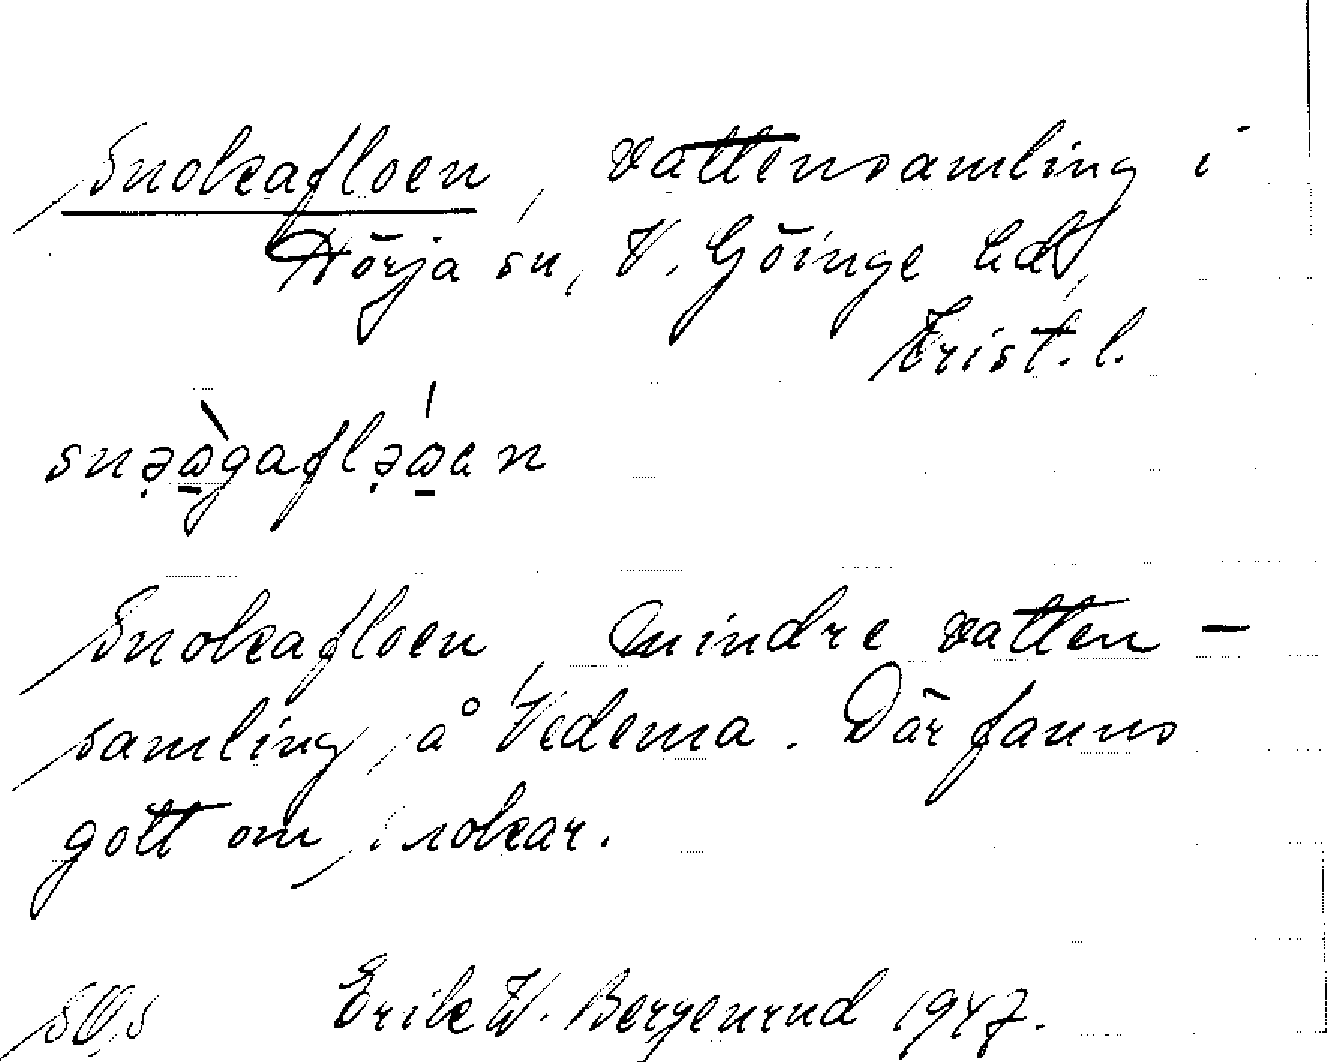 Snokafloen, vattensamling i
Hörja sn, V. Göinge hd,
Krist. l.
snə̣ὼ̱gaflə̣ώ̱en
Snokafloen, mindre vatten-
samling å Vedema. Där fanns
gott om snokar.
Erik W. Bergenrud 1947.